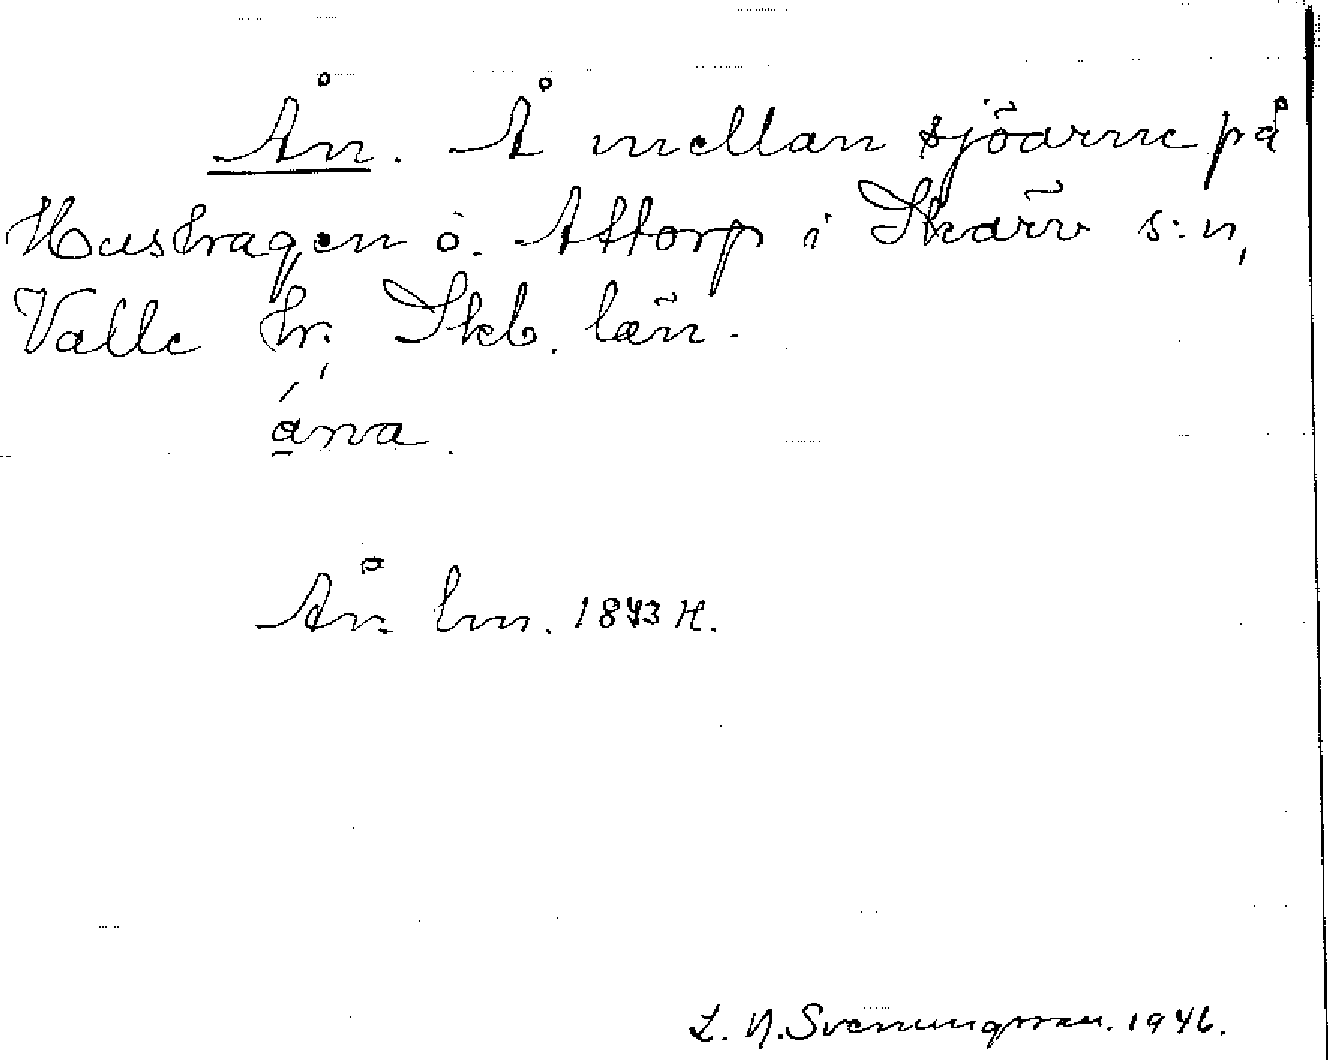 Ån. Å mellan sjöarne på
Hushagen o. Attorp i Skärv s:n,
Valle hr. Skb. län.
ána
Ån lm. 1843 H.
L. N. Svenungsson. 1946.